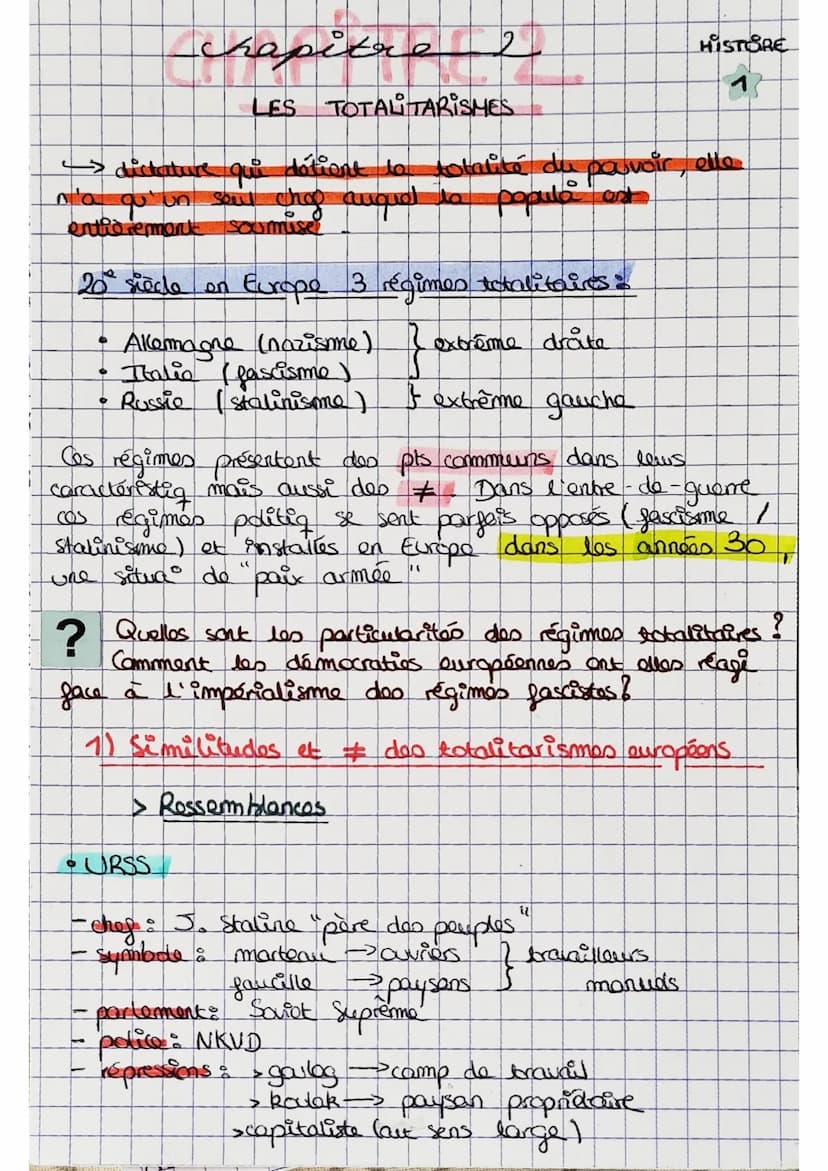 CHAPITRE 2
chapitre 2
HISTOIRE
1
LES TOTALITARISMES
→ dictature qui détient la totalité du pouvoir, elle
n'a qu'un seul chef auquel la populaº est
entièrement soumise.
20e siècle en Europe 3 régimes totalitaires :
• Allemagne (nazisme) } extrême droite
• Italie (fascisme)
• Russie (stalinisme) } extrême gauche
Ces régimes présentent des pts communs dans leurs
caractéristiq mais aussi des ≠. Dans l'entre-de-guerre
ces régimes politiq se sont parfois opposés (fascisme /
stalinisme) et installés en Europe dans les années 30,
une situaº de "paix armée"
? Quelles sont les particularités des régimes totalitaires ?
Comment les démocraties européennes ont elles réagi
face à l'impérialisme des régimes fascistes ?
1) Similitudes et ≠ des totalitarismes européens
> Ressemblances
• URSS
- chef : J. Staline "père des peuples"
- symbole : marteau → ouvriers } travailleurs
faucille → paysans manuels
- parlement : Soviet Suprême
- police : NKVD
- répressions : > goulag → camp de travail
> koulak → paysan propriétaire
> capitaliste (au sens large)